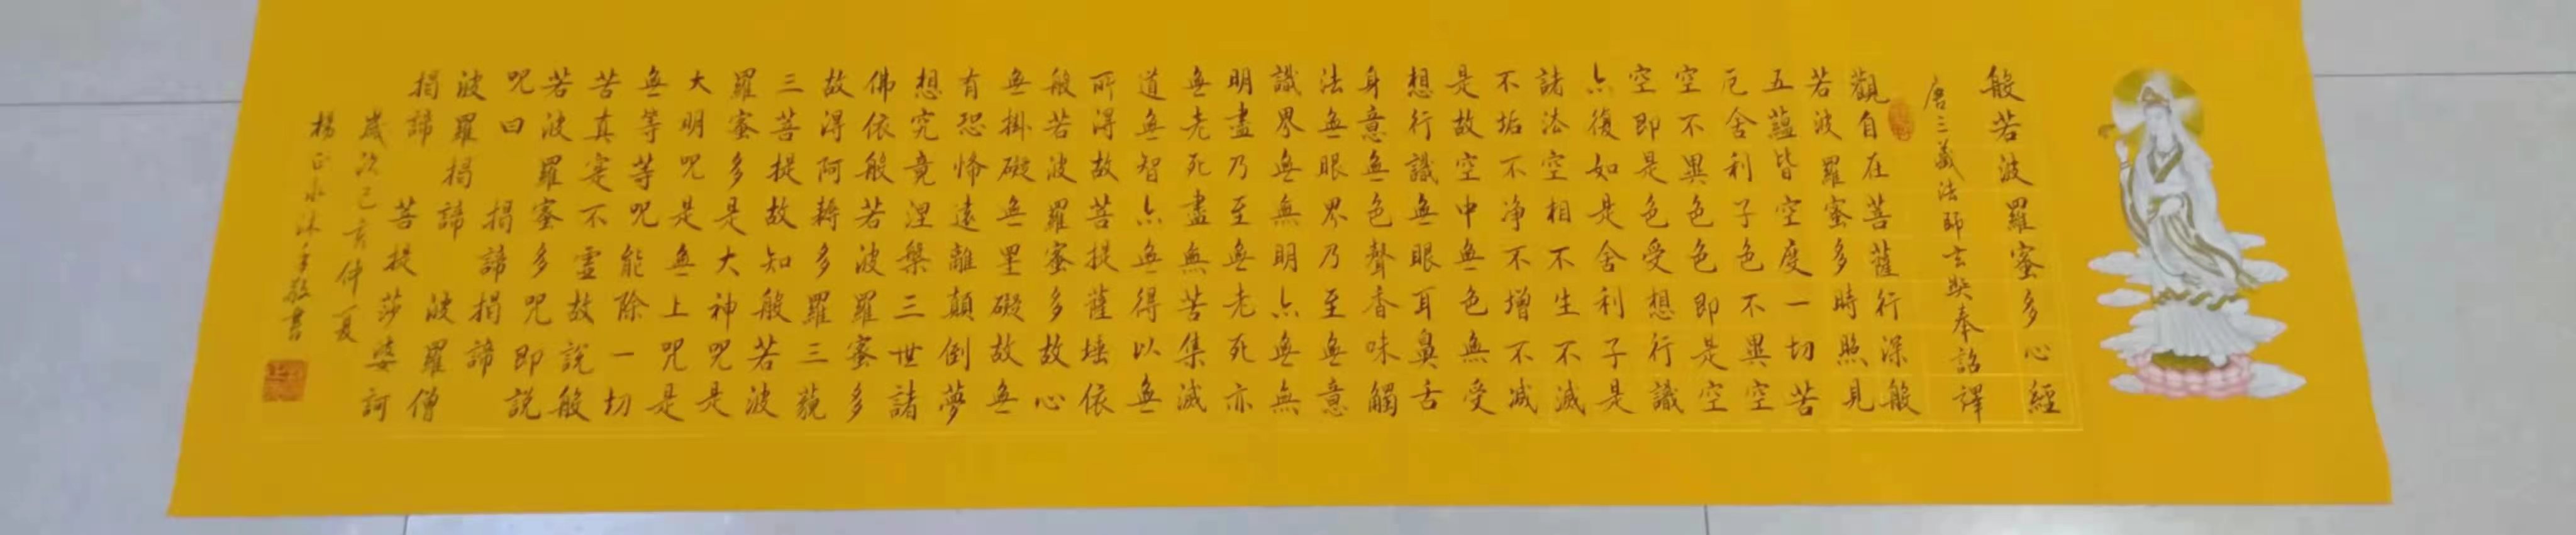 般若波羅蜜多心經
唐三藏法師玄奘奉詔譯
觀自在菩薩行深般
若波羅蜜多時照見
五蘊皆空度一切苦
厄舍利子色不異空
空不異色色即是空
空即是色受想行識
亦復如是舍利子是
諸法空相不生不滅
不垢不净不增不減
是故空中無色無受
想行識無眼耳鼻舌
身意無色聲香味觸
法無眼界乃至無意
識界無無明亦無無
明盡乃至無老死亦
無老死盡無苦集滅
道無智亦無得以無
所得故菩提薩埵依
般若波羅蜜多故心
無掛礙無罣礙故無
有恐怖遠離顛倒夢
想究竟涅槃三世諸
佛依般若波羅蜜多
故得阿耨多羅三藐
三菩提故知般若波
羅蜜多是大神咒是
大明咒是無上咒是
無等等咒能除一切
苦真實不虛故說般
若波羅蜜多咒即說
咒曰 揭諦揭諦
波羅揭諦 波羅僧
揭諦 菩提莎婆訶
歲次己亥仲夏
楊正水沐手敬書